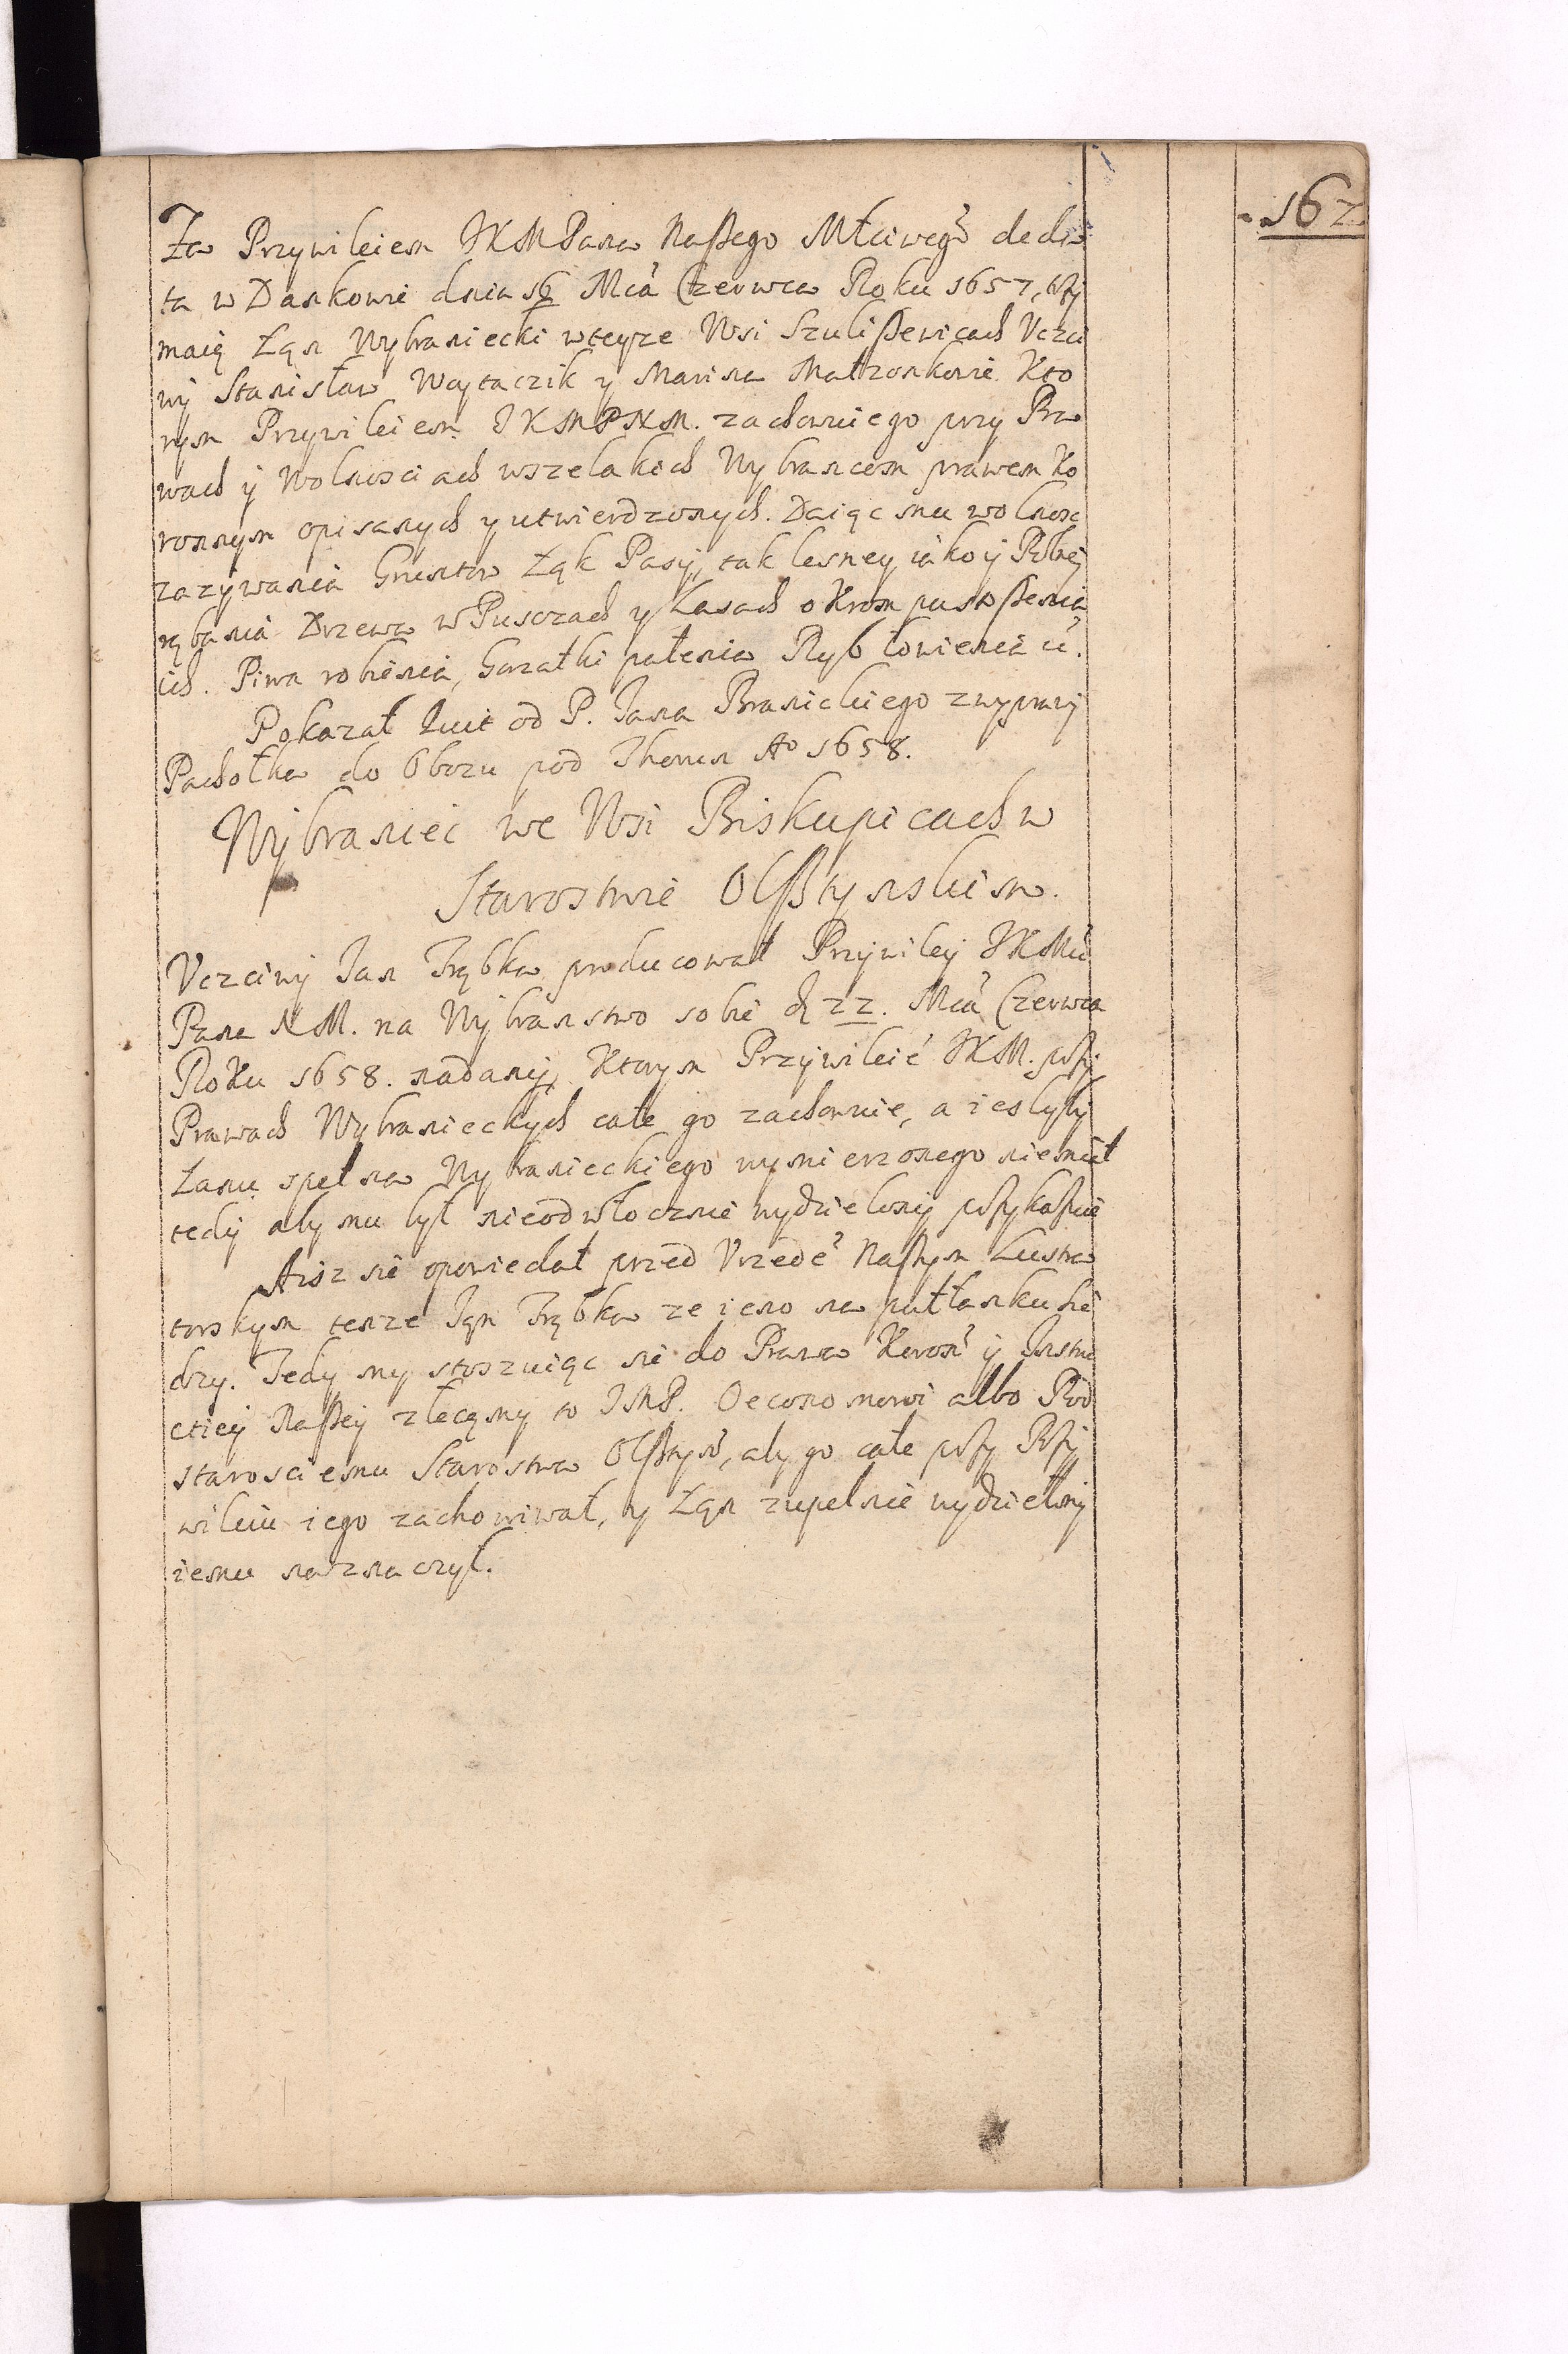 162
Za Przywileiem JKM Pana Naszego Młciwego de da
ta w Dankowie dnia 16 Mca Czerwca Roku 1657, trzy
maią Łąn Wybraniecki wteyże Wsi Szuliszewicach Vczci
wy Stanisław Woytaczik y Marina Małzonkowie. Kto
rym Przywileiem JKMPNM. zachowuie go przy Pra
wach ÿ Wolnosciach wszelakich Wybrancom prawem Ko
ronnym opisanych y utwierdzonych. Daiąc mu wolnosc
zazywania Gruntow Łąk Pasÿ, tak lesney iako ÿ Polnej
rąbania Drzewa w Pusczach y Lasach okrom pustoszenia
ich. Piwa robienia, Gorzałki palenia Ryb łowienia ic.
Pokazał Quit od P. Jana Branickiego z wyprawy
Pachołka do Obozu pod Thorun Ao 1658.
Wÿbraniec we Wsi Biskupicach w
Starostwie Olsztynskim.
Vczciwÿ Jan Trąbka producował Przÿwiley JKMci
Pana NM. na Wÿbranstwo sobie d 22. Mca Czerwca
Roku 1658. nadanÿ, Ktorym Przÿwileie JKM. przÿ
Prawach Wybranieckych cale go zachowuie, a iesliby
Łanu spełna Wybranieckiego wymierzonego niemiał
tedÿ aby mu był nieodwłocznie wydzielonÿ przykazuie
Aisz sie opowiedał przed Vrzede Naszym Lustra
torskym tenze Jan Trąbka ze ieno na pułłanku sie
dzy. Tedy my stoszuiąc sie do Prawa Koron ÿ Instru
ctiey Naszeÿ zlecamy to JMP. Oeconomowi albo Pod
starosciemu Starostwa Olsztyn, aby go cale przy Przÿ
wileiu iego zachowiwał, y Łąn zupełnie wydzielony
iemu naznaczył.